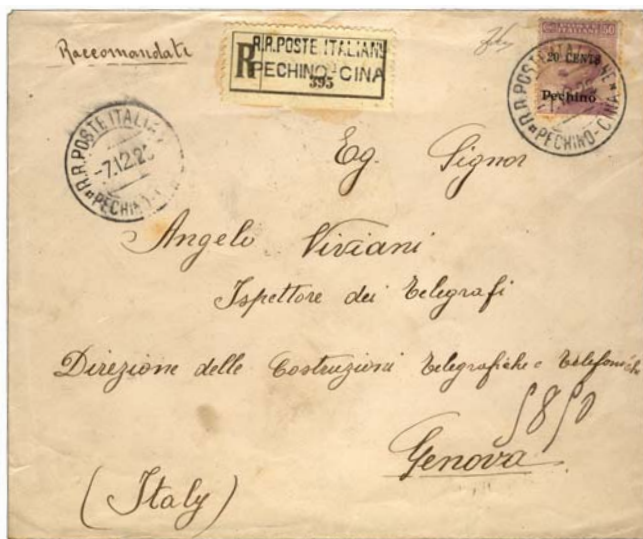 Raccomandata
R
R.R. POSTE ITALIANE
PECHINO-CINA
395
20 CENTS
Pechino
R.R. POSTE ITALIANE
PECHINO-CINA
R.R. POSTE ITALIA
-7.12.2
PECHINO-C
Eg. Signor
Angelo Viviani
Ispettore dei Telegrafi
Direzione delle Costruzioni Telegrafiche e Telefoniche
Genova
(Italy)